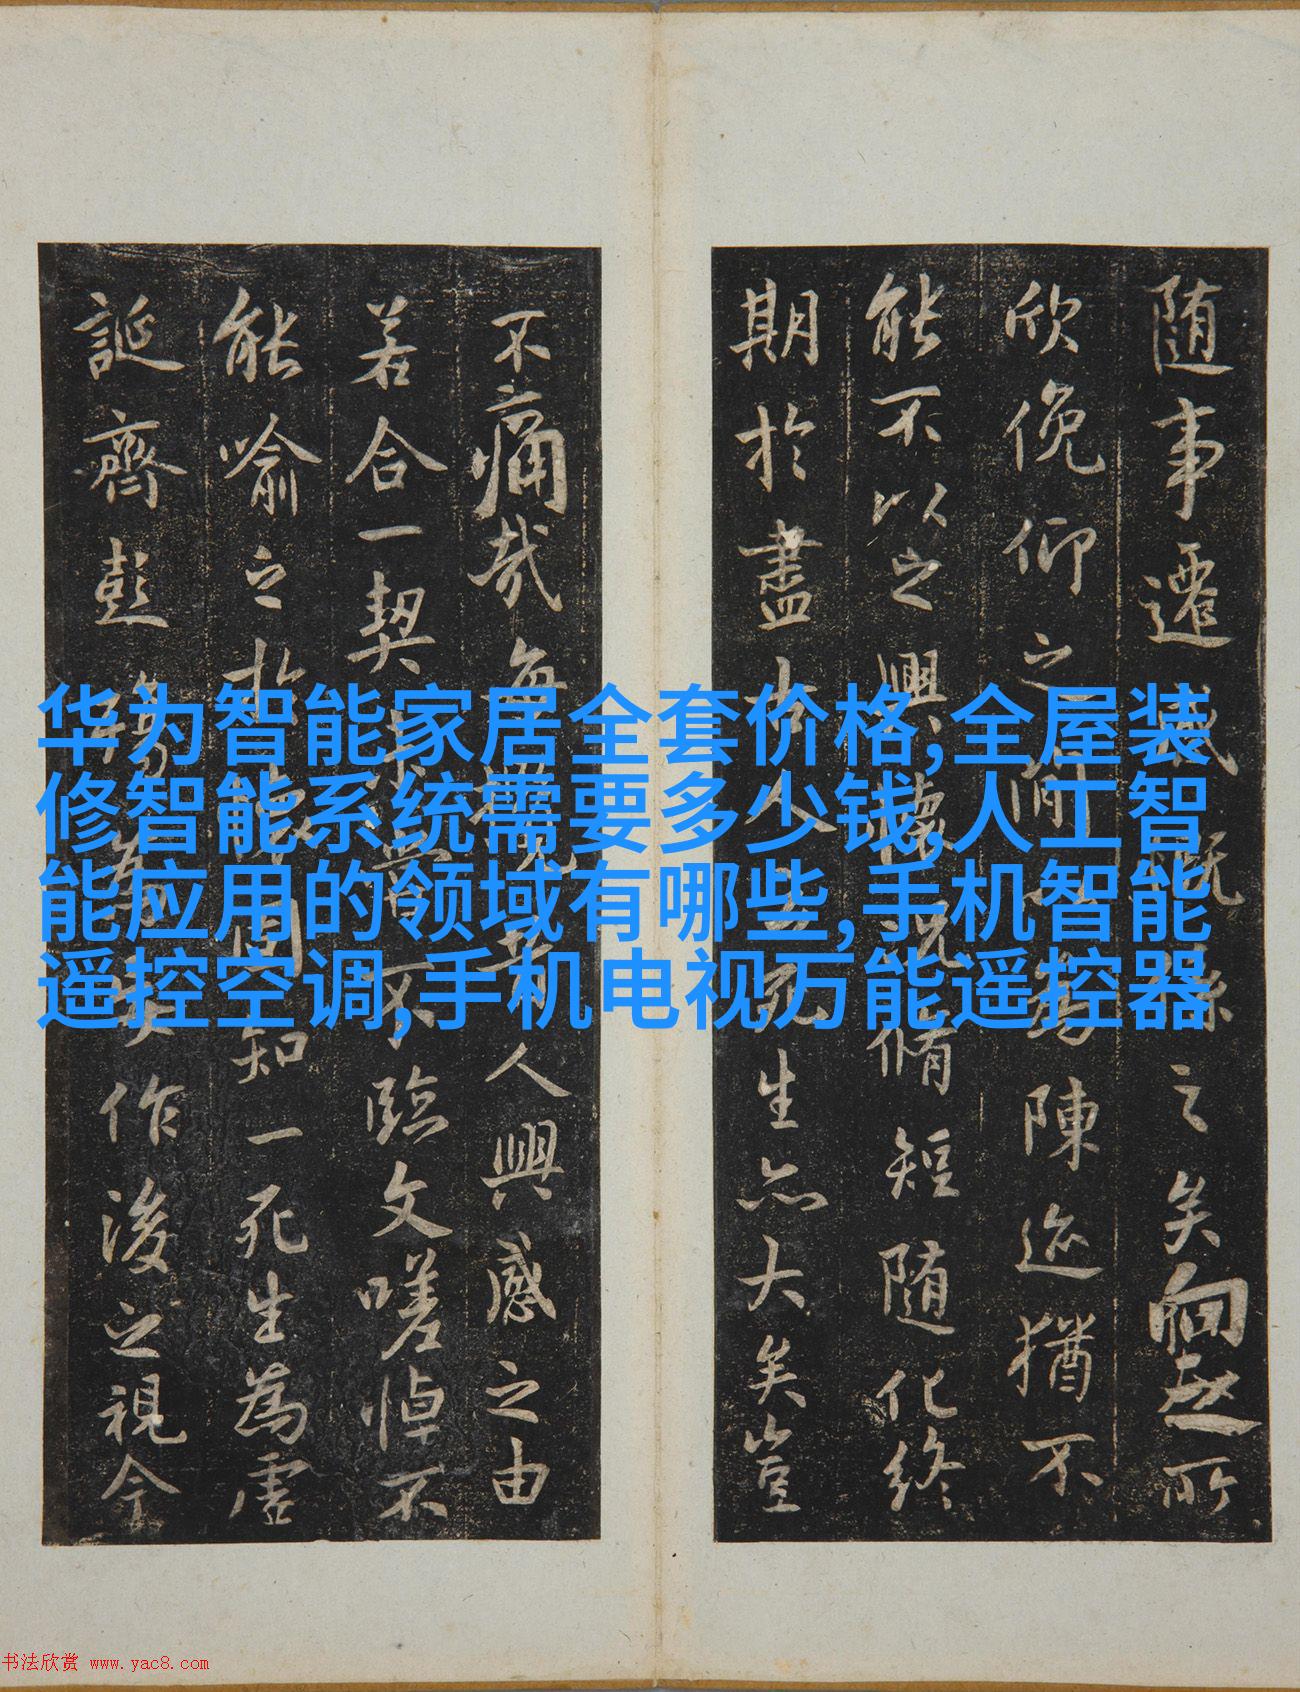 随事遷感慨係之矣向之所
欣俛仰之間以為陳迹猶不
能不以之興懷況脩短随化終
期於盡古人云死生亦大矣豈
不痛哉每攬昔人興感之由
若合一契未嘗不臨文嗟悼不
能喻之於懷固知一死生為虚
誕齊彭殤為妄作後之視今
华为智能家居全套价格,全屋装
修智能系统需要多少钱,人工智
能应用的领域有哪些,手机智能
遥控空调,手机电视万能遥控器
书法欣赏 www.yac8.com